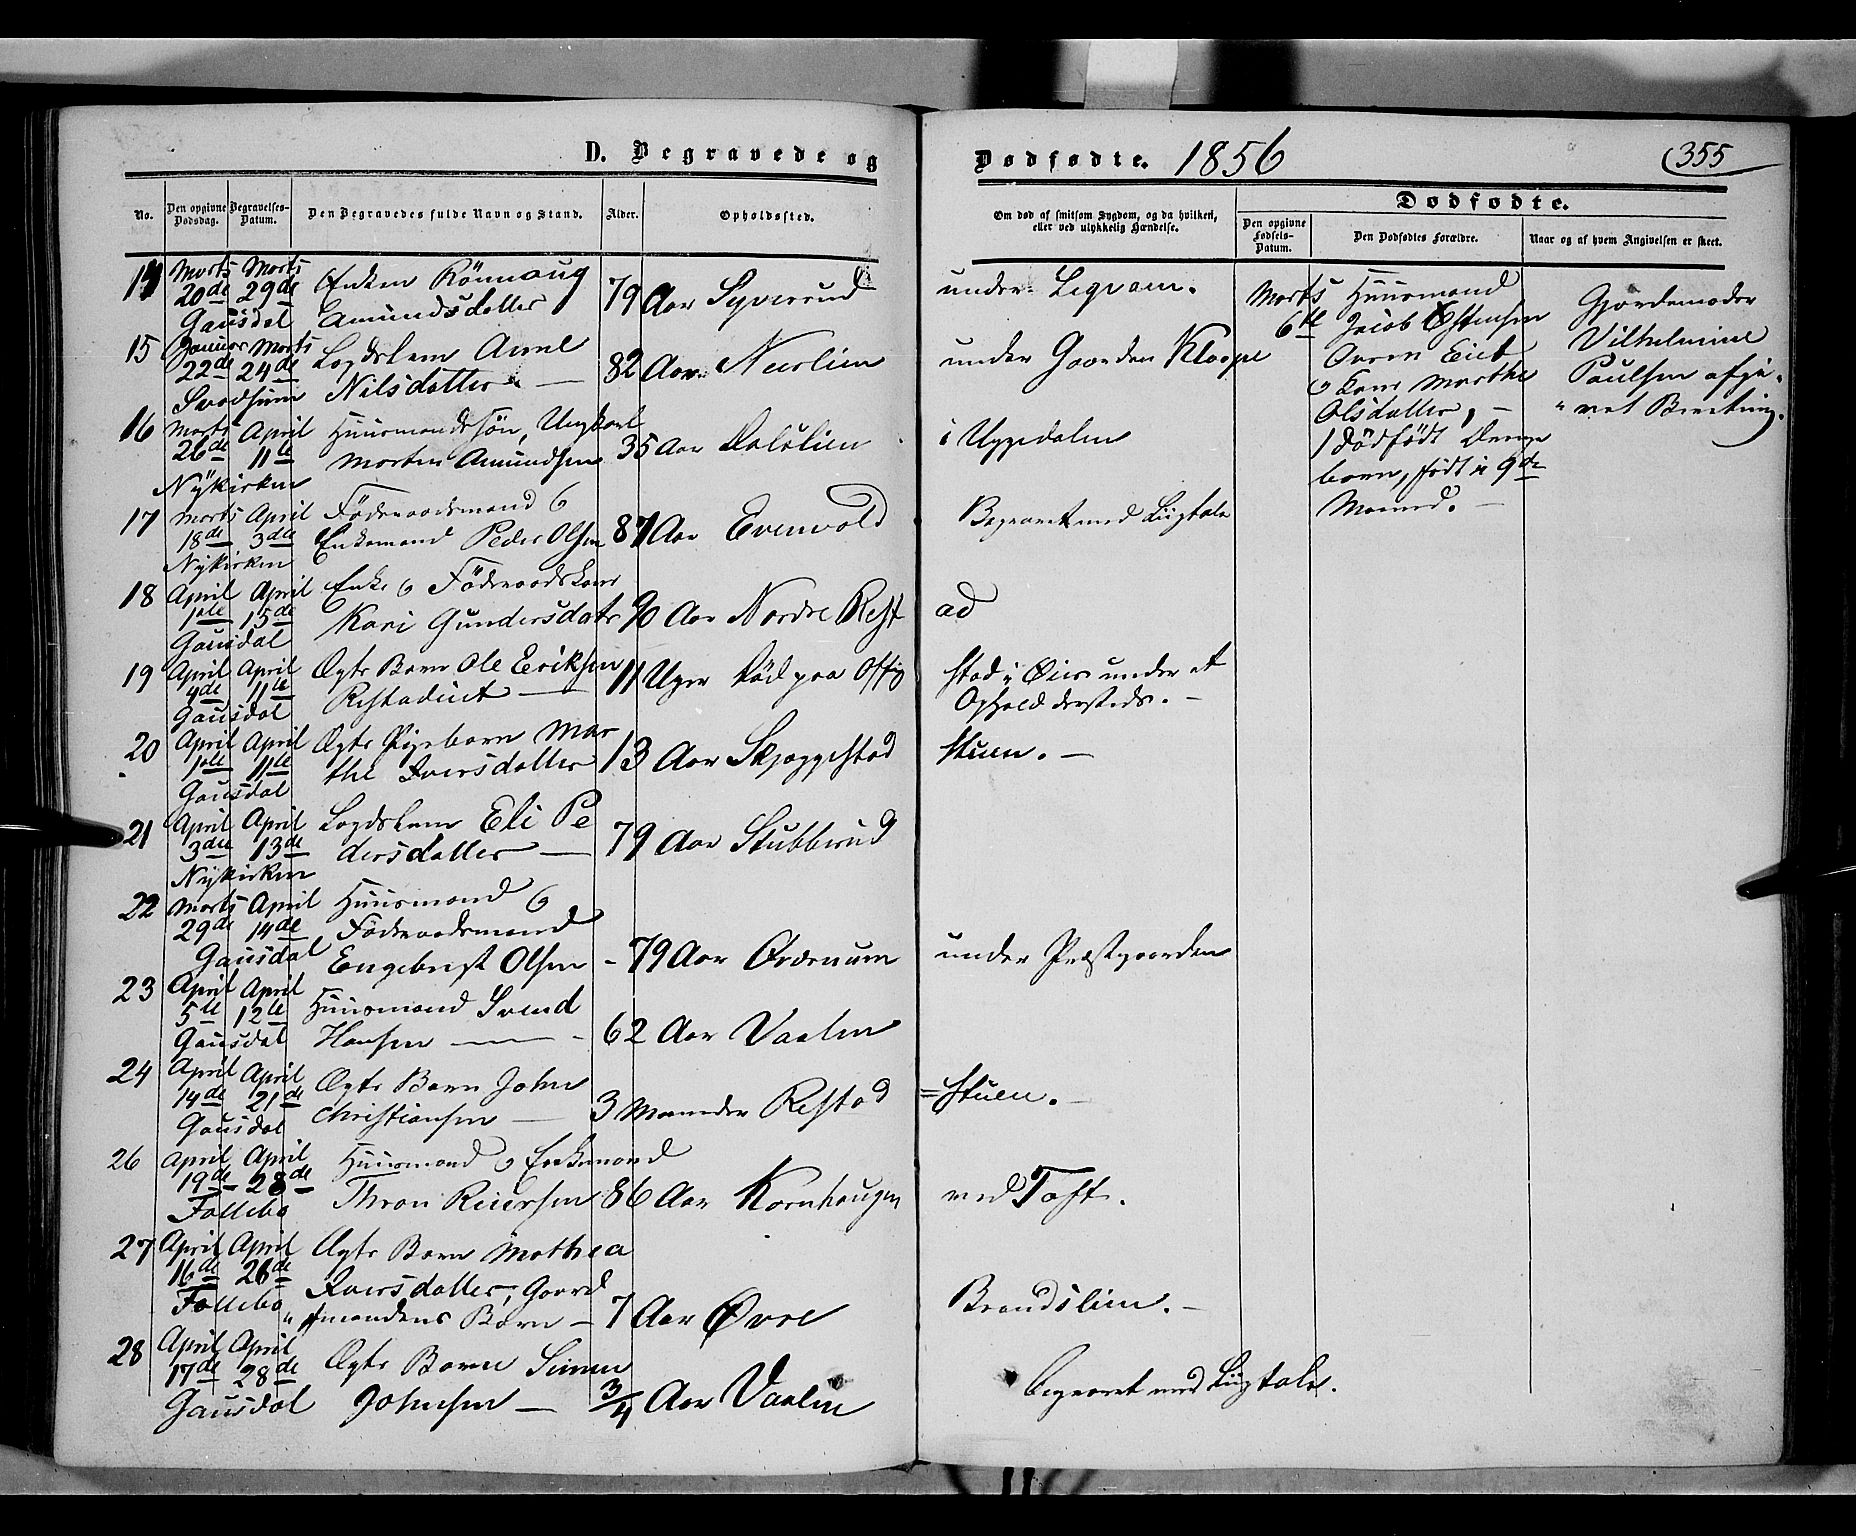 D. Begravede og
Dødfødte. 1856
355
No.
Den opgivne Dødsdag.
Begravelses-Datum.
Den Begravedes fulde Navn og Stand.
Alder.
Opholdssted.
Om død af smitsom Sygdom, og da hvilken,
eller ved ulykkelig Hændelse.
Dødfødte.
Den opgivne Fødsels-Datum.
Den Dødfødtes Forældre.
Naar og af hvem Angivelsen er skeet.
14 Marts Marts Enken Rönnaug
20de 29de 79 Aar Syverud under
Gausdal Amundsdatter
15 Januar Marts Lægdslem Anne
22de 24de Nilsdatter 82 Aar under Gaarden Kloppe
Svadsum
16 Marts April Huusmandssøn, Ungkarl
26de 11te Morten Amundsen 35 Aar Dalslien i Uggedalen
Nykirken
17 Marts April Föderaadsmand o
18de 3die Enkemand Peder Olsen 87 Aar Evenvold Begravet med Liigtale
Nykirken
18 April April Enke o Föderaadskone
1ste 15de Kari Gundersdatr 90 Aar Nordre Rest ad
Gausdal
19 April April Ægte Barn Ole Eriksen
4de 11te Restadeiet 11 Uger Död paa Offig stad i Öier under et
Gausdal Ophold dersteds.
20 April April Ægte Pigebarn Mar
1ste 11te the Iversdatter 13 Aar Skjæggestad stuen.
Gausdal
21 April April Lægdslem Eli Pe
3die 13de dersdatter 79 Aar Stubberud
Nykirken
22 Marts April Huusmand o
29de 14de Föderaadsmand
Gausdal Engebregt Olsen 79 Aar under Præstgaarden
23 April April Huusmand Svend
5te 12te Hansen 62 Aar Vaalen
Gausdal
24 April April Ægte Barn John
14de 21de Christiansen 3 Maaneder Restad = stuen.
Gausdal
26 April April Huusmand o Enkemand
19de 28de Thron Reiersen 86 Aar Kornhaugen ved Toft.
Follebo
27 April April Ægte Barn Mathea
16de 26de Iversdatter, Gaard
Follebo mandens Barn 7 Aar Øvre Brandslien.
28 April April Ægte Barn Simen
17de 28de Johnsen 3/4 Aar Vaalen begravet med Liigtale.
Gausdal
Marts Huusmand
6te Jacob Østensen
o Kone Marthe
Olsdatter,
1 dödfödt Drenge
barn, födt i 9de
Maaned.
Gjordemoder
Vilhelmine
Paulsen afgi-
vet Beretning.